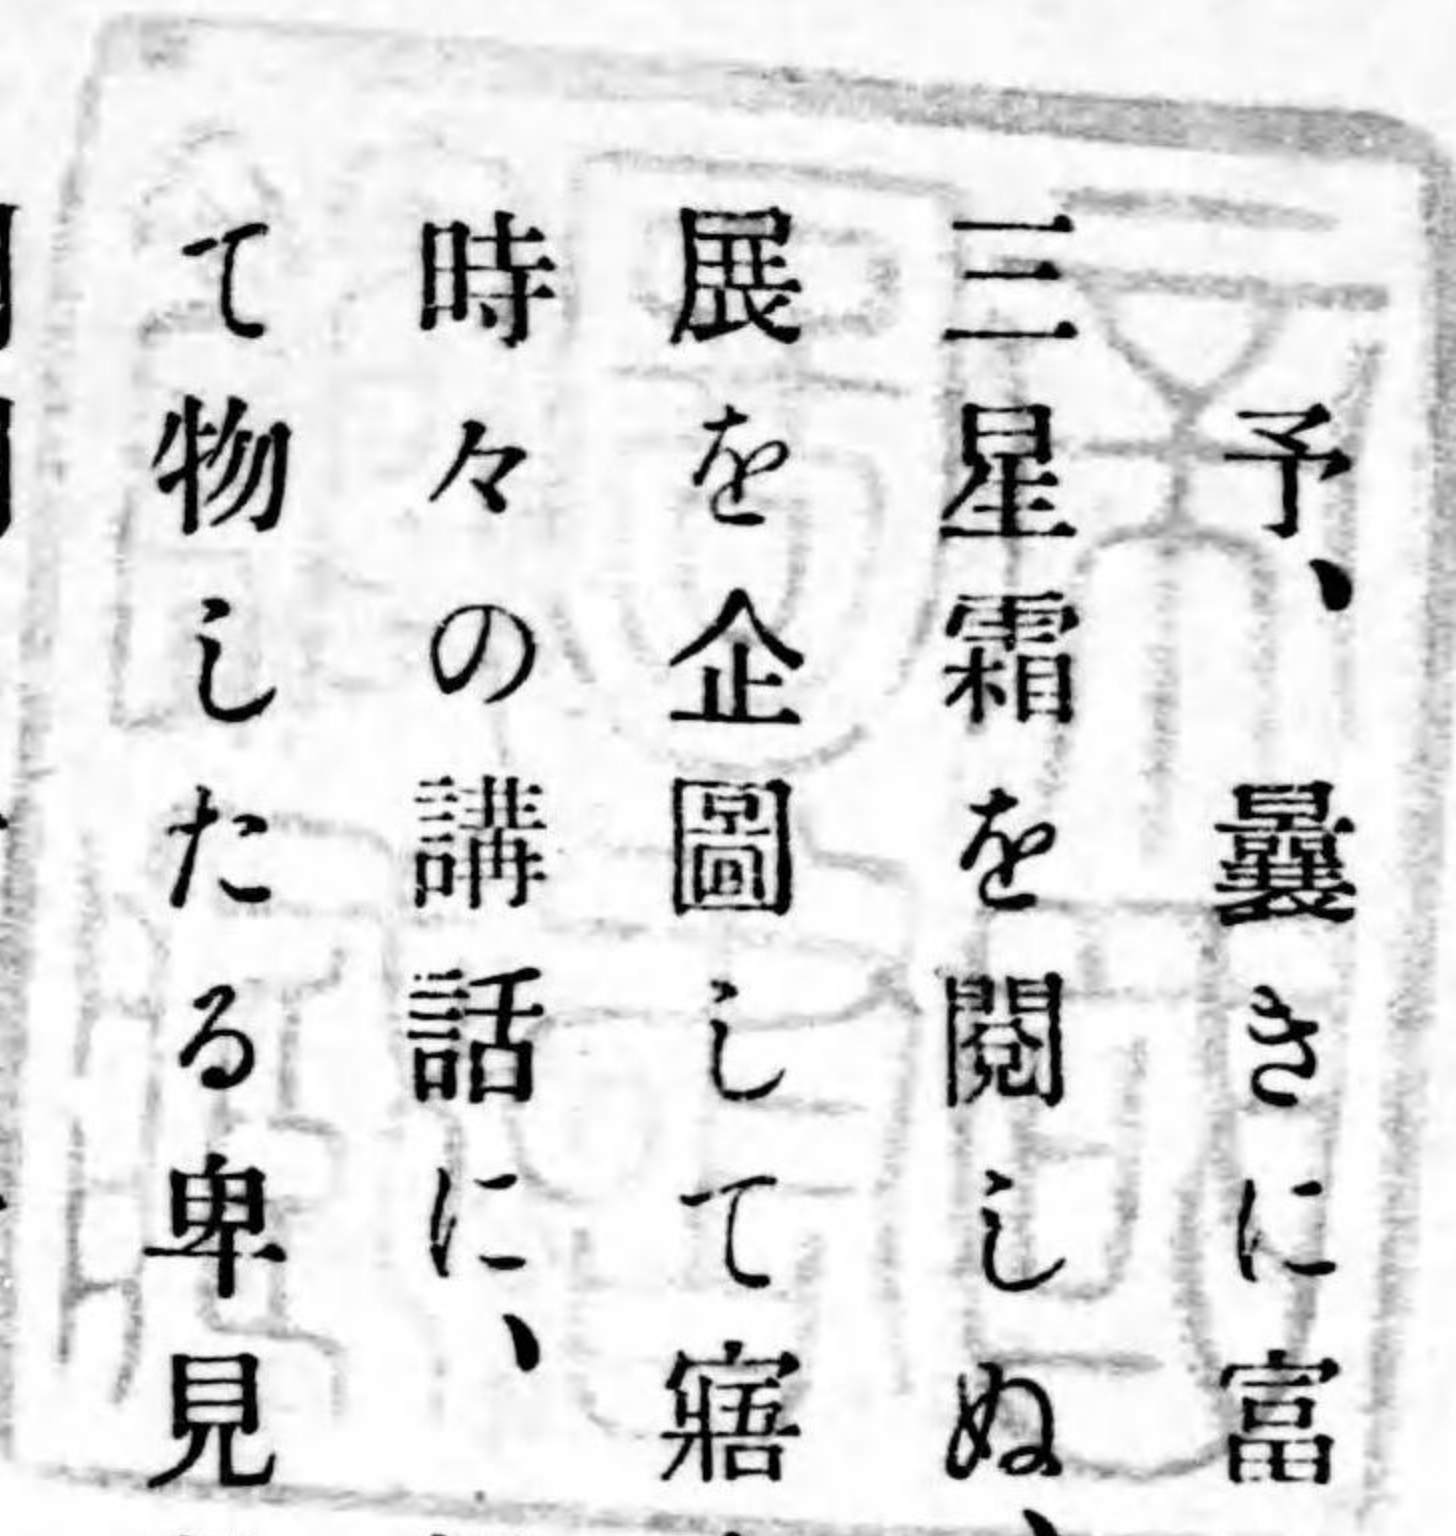 予、曩きに富
三星霜を閲しぬ、
展を企圖して寤
時々の講話に、
て物したる卑見